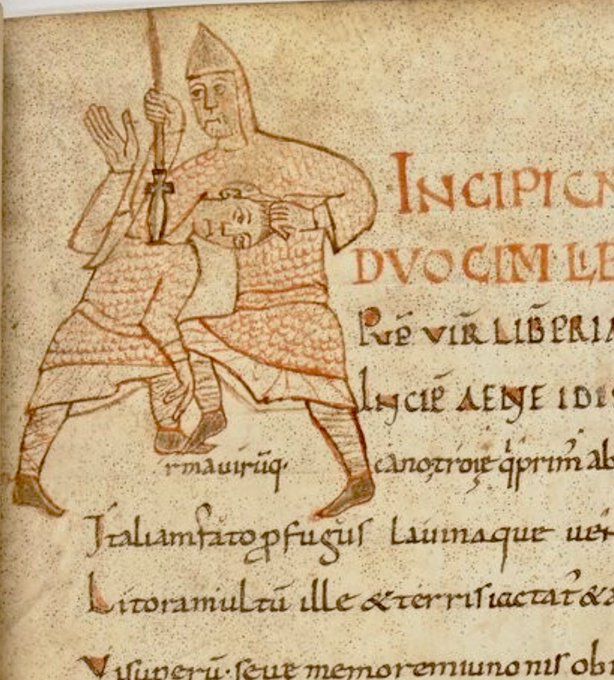 INCIPIUN
DVOCIM LI
LIBERI
INCIP AENEIDI
rmauirūq· cano troie q prim ab
Italiam fato ꝓfugus lauinaque ue
Litora multū ille &terris iactat' &a
Visuperū· seue memorem iunonis obi